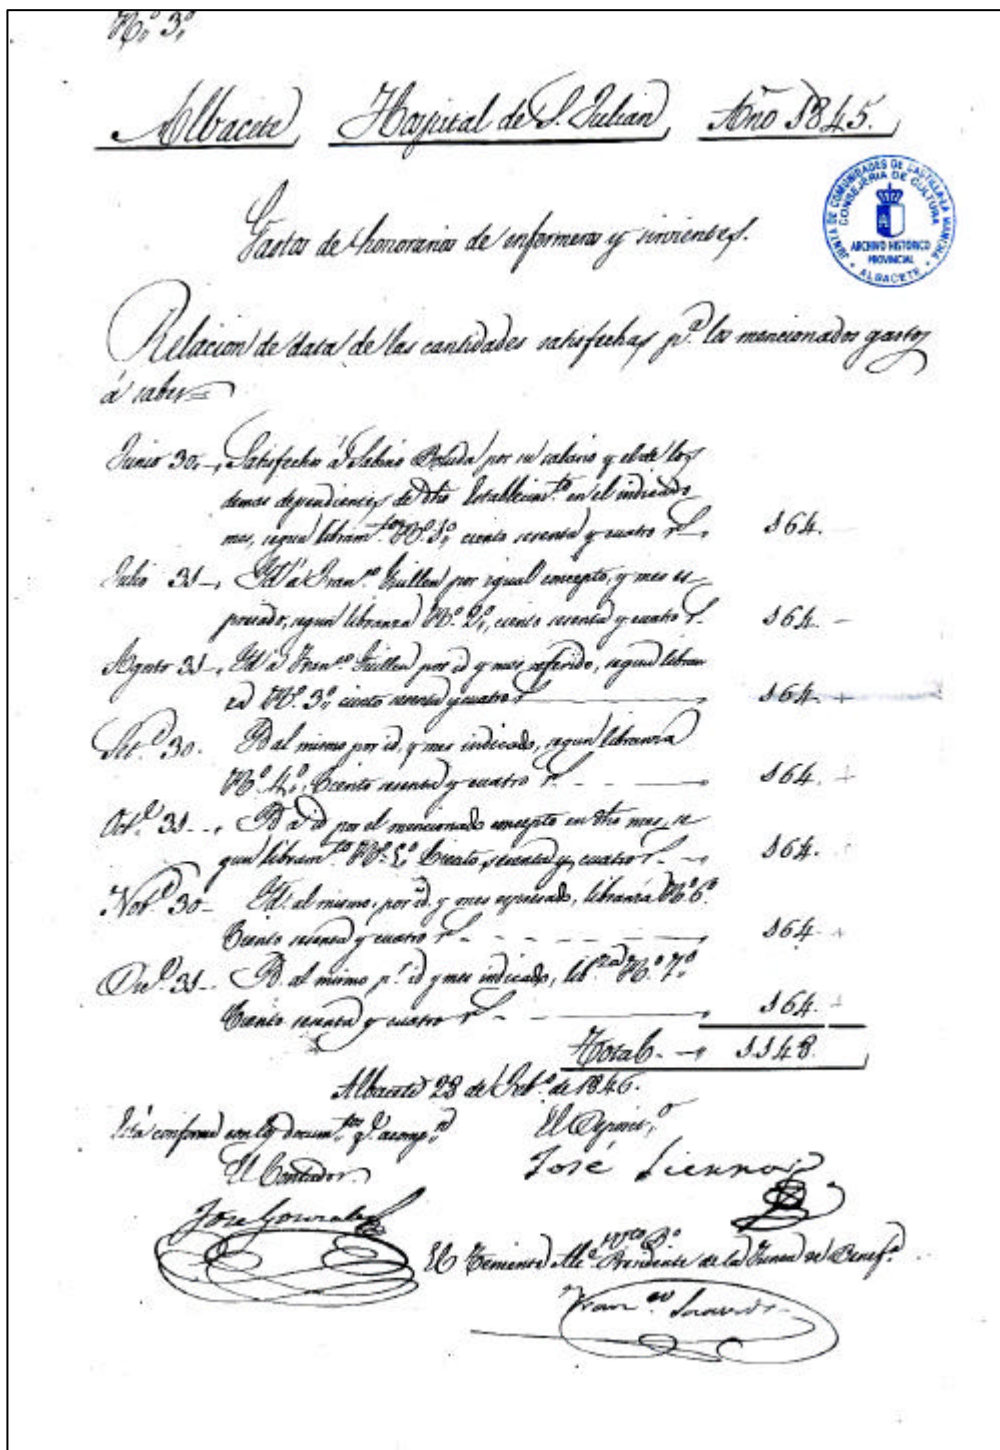 Nº 3º
Albacete Hospital de S. Julian Año 1845.
JUNTA DE COMUNIDADES DE CASTILLA-LA MANCHA
CONSEJERIA DE CULTURA
ARCHIVO HISTORICO
PROVINCIAL
ALBACETE
Gastos de honorarios de enfermeros y sirvientes.
Relacion de data de las cantidades satisfechas pª los mencionados gastos
á saber=
Junio 30 Satisfechos á Sabino por su salario y el de los
demas dependientes de dho Establecimto en el indicado
mes, segun libramto Nº 1º, ciento sesenta y cuatro rs 164.
Julio 31 Id á Franco Guillen por igual concepto, y mes es-
presado, segun libranza Nº 2º, ciento sesenta y cuatro rs 164.
Agosto 31 Id á Franco Guillen por id y mes referido, segun libran
za Nº 3º ciento sesenta y cuatro rs 164.
Set.e 30. Id al mismo por id. y mes indicado, segun libranza
Nº 4º, Ciento sesenta y cuatro rs 164.
Oct.e 31 Id á id por el mencionado concepto en dho mes, se-
gun libramto Nº 5º Ciento sesenta y cuatro rs 164.
Nob.e 30 Id. al mismo, por id. y mes espresado, libranza Nº 6º
Ciento sesenta y cuatro rs 164.
Dic.e 31 Id. al mismo pr id y mes indicado, libza Nº 7º
Ciento sesenta y cuatro rs 164.
Total 1148.
Albacete 28 de Feb.º de 1846.
Está conforme con los documtos qe acompn
El Contador
Jose Gonzalez
José
Vto Bº
El Teniente Alce Presidente de la Junta de Benefª
Franco